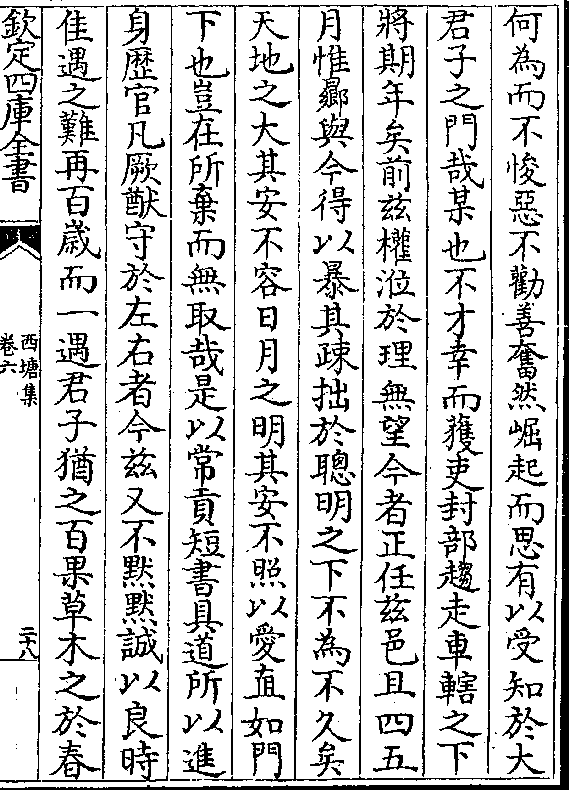 何為而不悛惡不勸善奮然崛起而思有以受知於大
君子之門哉某也不才幸而獲吏封部趨走車轄之下
將期年矣前兹權涖於理無望今者正任兹邑且四五
月惟曏與今得以暴其疎拙於聰明之下不為不久矣
天地之大其安不容日月之明其安不照以愛直如門
下也豈在所棄而無取哉是以常貢短書具道所以進
身歴官凡厥猷守於左右者今兹又不默默誠以良時
佳遇之難再百歳而一遇君子猶之百果草木之於春
欽定四庫全書
西塘集
卷六
二十八